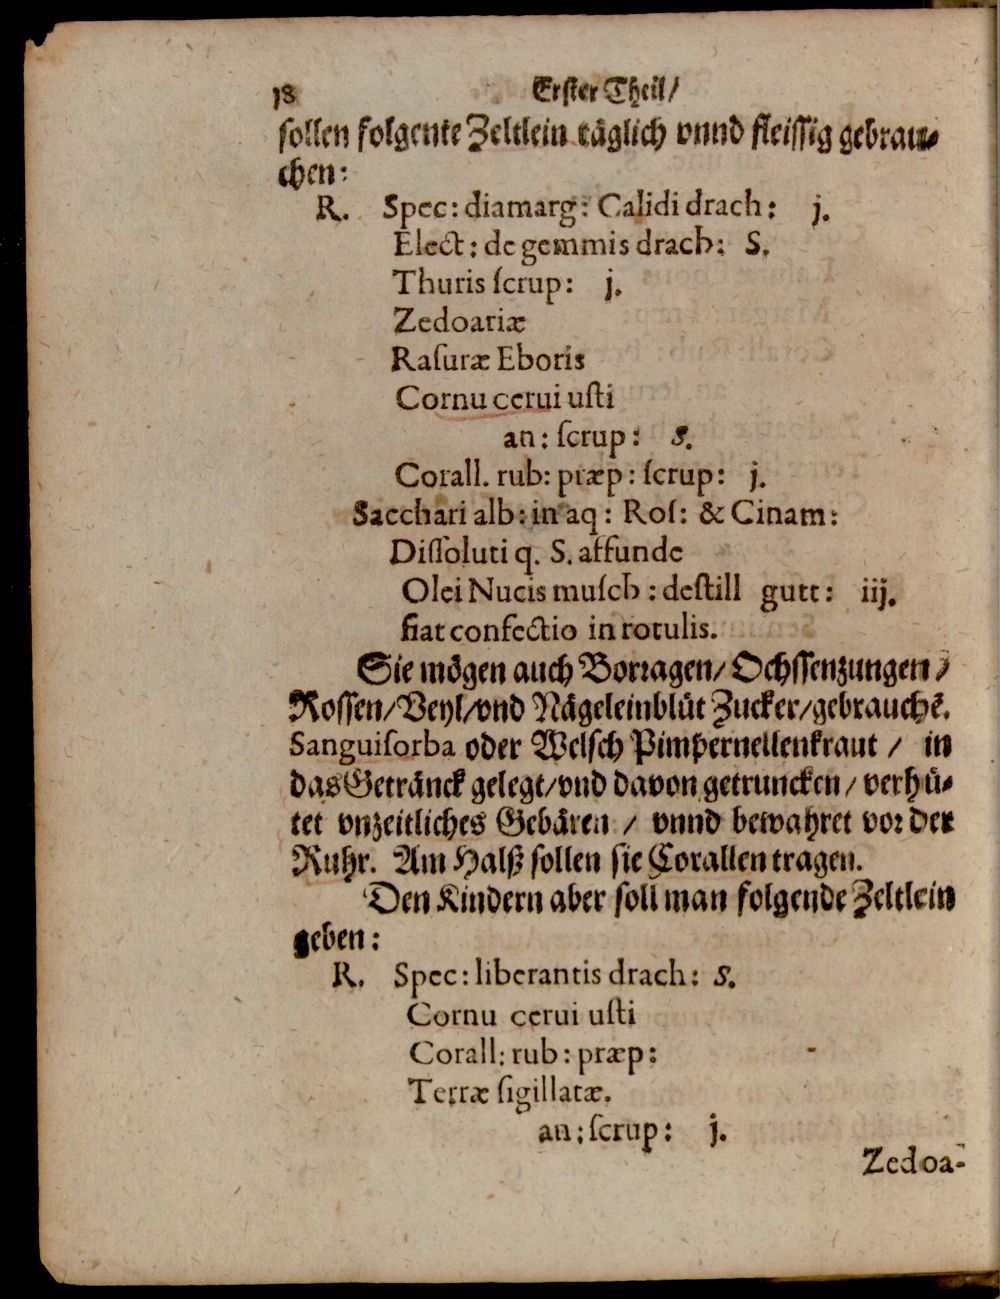 18 Erster Theil/
sollen folgente Zeltlein täglich vnnd fleissig gebrau-
chen:
R. Spec: diamarg: Calidi drach: j.
Elect: de gemmis drach: S.
Thuris ſcrup: j.
Zedoariæ
Raſuræ Eboris
Cornu cerui uſti
an: ſcrup: s.
Corall. rub: præp: ſcrup: j.
Sacchari alb: in aq: Roſ: & Cinam:
Diſſoluti q. S. affunde
Olei Nucis muſch: deſtill gutt: iij.
fiat confectio in rotulis.
Sie mögen auch Borragen/ Ochssenzungen/
Rossen/Veyl/vnd Nägeleinblüt Zucker/gebrauchẽ.
Sanguiſorba oder Welsch Pimpernellenkraut / in
das Getränck gelegt/vnd davon getruncken/ verhü-
tet vnzeitliches Gebären / vnnd bewahret vor der
Ruhr. Am Halß sollen sie Corallen tragen.
Den Kindern aber soll man folgende Zeltlein
geben:
R. Spec: liberantis drach: s.
Cornu cerui uſti
Corall: rub: præp:
Terræ ſigillatæ.
an: ſcrup: j.
Zedoa-